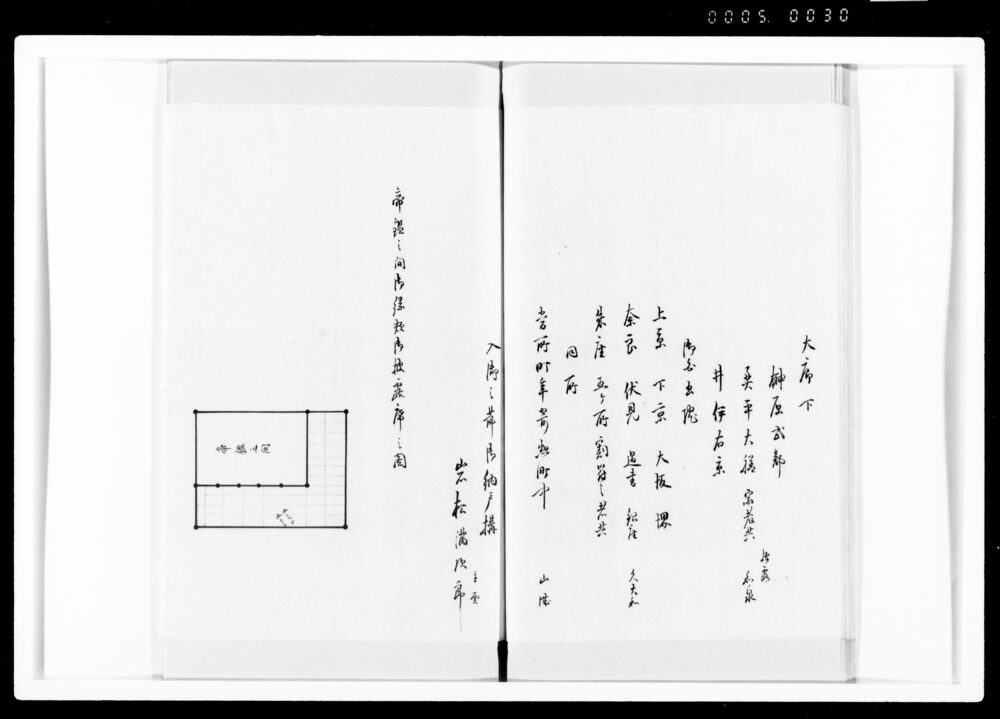 0005. 0030
大廊下
榊原式部
奥平大膳 家老共 披露 和泉
井伊右京
上京 下京 大坂 堺
奈良 伏見 過書 銀座 久大和
朱座 五ヶ所割符之者共
同所
当所町年寄惣町中 山城
入御之節御納戸構
岩松満次郎
帝鑑之間御縁頬御披露席之図
帝鑑之間